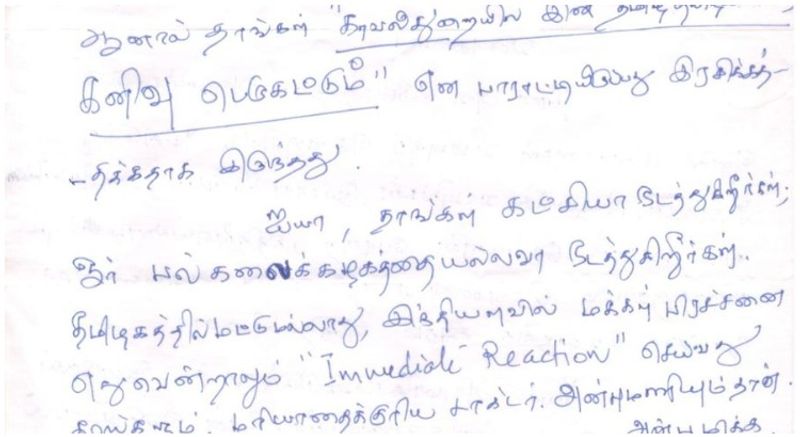 ஆனால் தாங்கள் "காவல்துறையில் இன்ப
கனிவு பெருகட்டும்" என பாராட்டியிருப்பது இரசிக்கத்-
-தக்கதாக இருந்தது.
ஐயா, தாங்கள் கட்சியா நடத்துகிறீர்கள்,
ஓர் பல்கலைக்கழகத்தையல்லவா நடத்துகிறீர்கள்..
தமிழகத்தில் மட்டுமல்லாது, இந்தியளவில் மக்கள் பிரச்சனை
எதுவென்றாலும் "Immediate Reaction" செய்வது
தாங்களும், மரியாதைக்குரிய டாக்டர். அன்புமணியும்தான்.
அன்புமிக்க